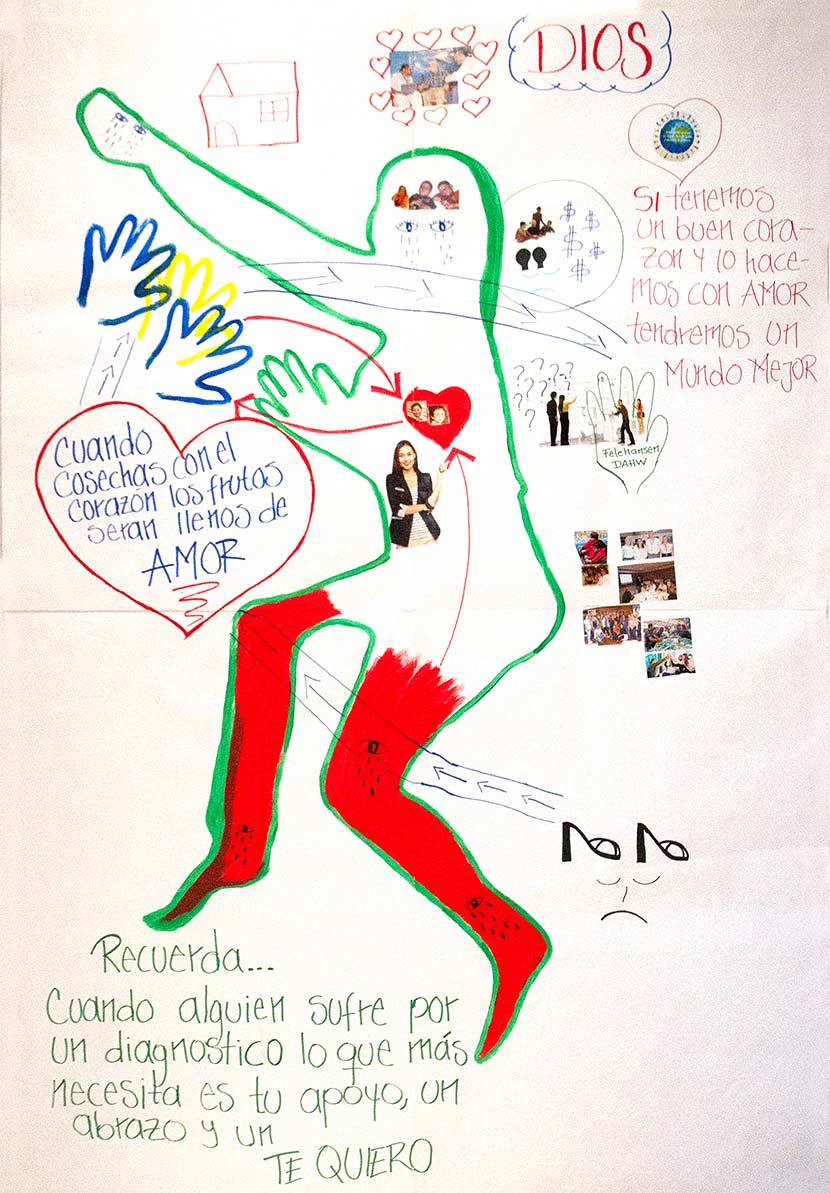 DIOS
SI tenemos
un buen cora-
zon y lo hace-
mos con AMOR
tendremos un
Mundo MEJOR
$ $
$ $
$ $
? ? ? ?
Felehansen
DAHW
Cuando
cosechas con el
corazón los frutos
seran llenos de
AMOR
NO NO
Recuerda...
Cuando alguien sufre por
un diagnostico lo que más
necesita es tu apoyo, un
abrazo y un
TE QUIERO